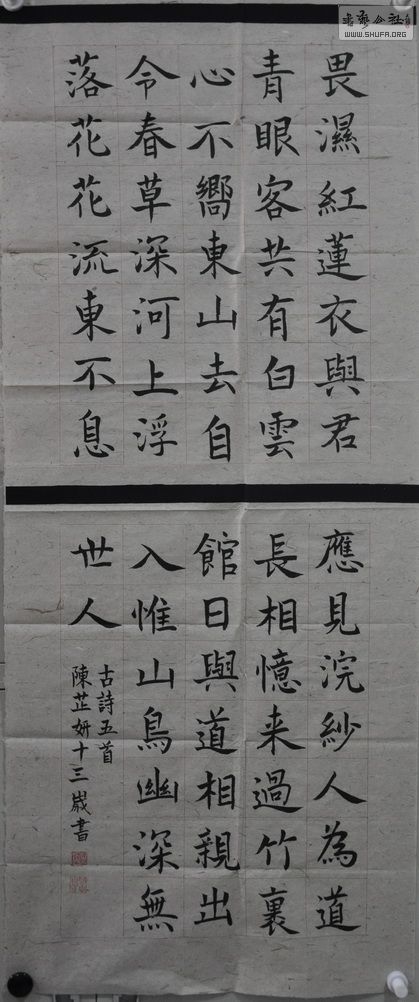 書藝公社
WWW.SHUFA.ORG
畏濕紅蓮衣與君
青眼客共有白雲
心不嚮東山去自
令春草深河上浮
落花花流東不息
應見浣紗人為道
長相憶来過竹裏
館日與道相親出
入惟山鳥幽深無
世人
古詩五首
陳芷妍十三歲書